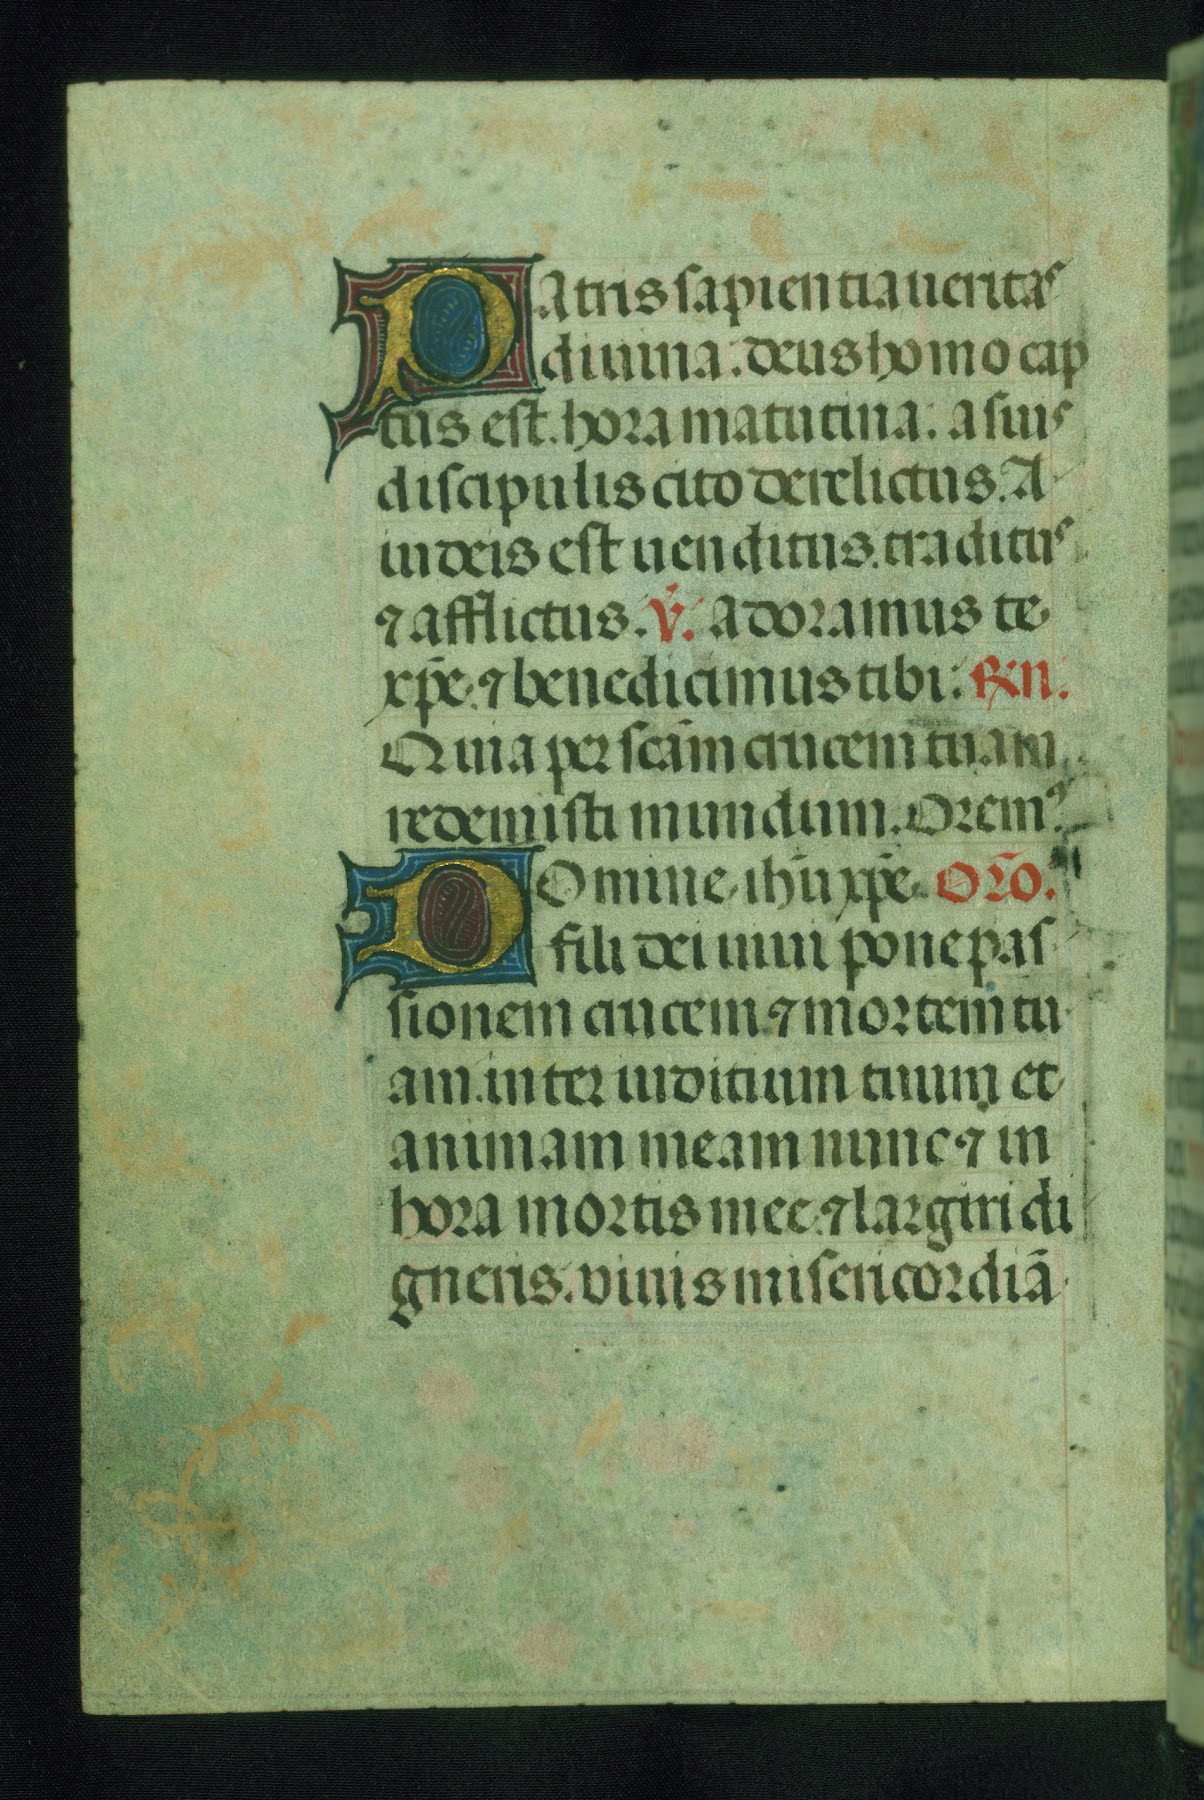 Patris sapientia ueritas
diuina: deus homo cap
tus est. hora matutina: a suis
discipulis cito derelictus. A
iudeis est uenditus. traditus
⁊ afflictus. V̾. Adoramus te
xp̄e. ⁊ benedicimus tibi: R̾n.
Quia per sc̄am crucem tuam
redemisti mundum. Oremꝰ
Domine ihū xp̄e. Or̄o.
fili dei uiui pone pas
sionem crucem ⁊ mortem tu
am. inter iuditium tuum et
animam meam nunc ⁊ in
hora mortis mee. ⁊ largiri di
gneris. viuis misericordiā